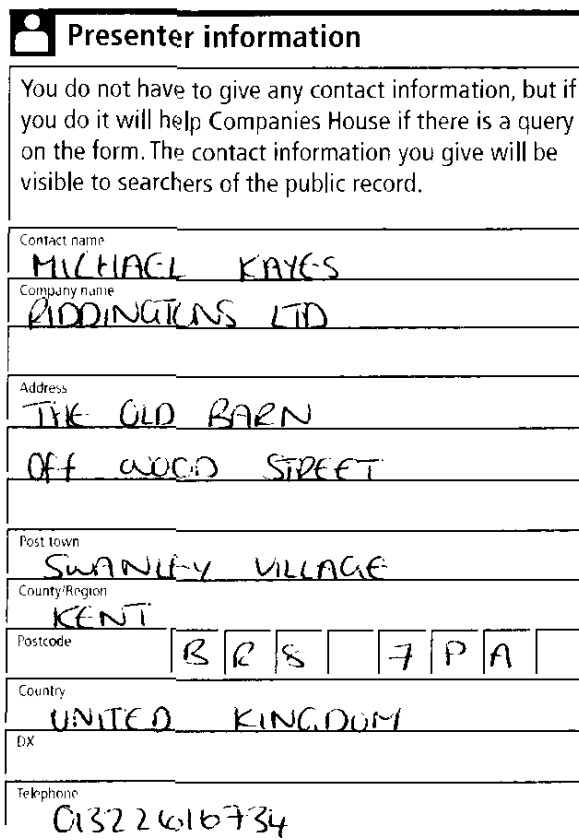 Presenter information
You do not have to give any contact information, but if
you do it will help Companies House if there is a query
on the form. The contact information you give will be
visible to searchers of the public record.
Contact name
MICHAEL KAYES
Company name
RIDDINGTONS LTD
Address
THE OLD BARN
OFF WOOD STREET
Post town
SWANLEY VILLAGE
County/Region
KENT
Postcode
BR8 7PA
Country
UNITED KINGDOM
DX
Telephone
01322616734